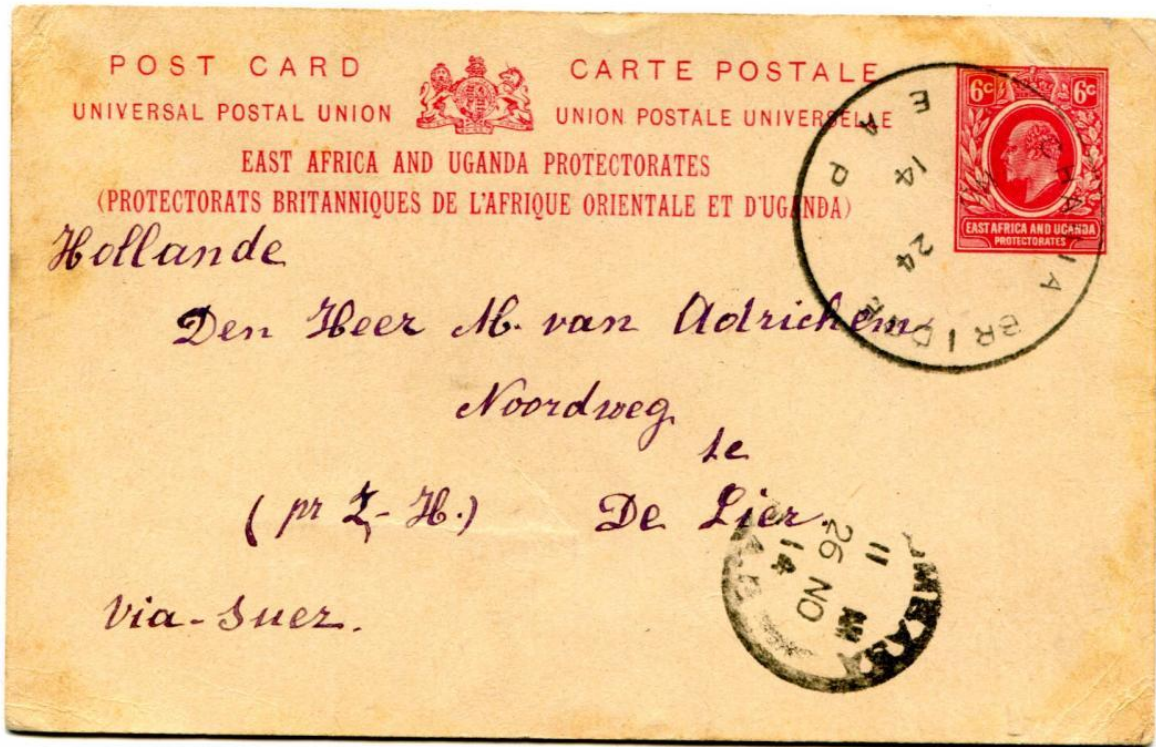 POST CARD
CARTE POSTALE
UNIVERSAL POSTAL UNION
UNION POSTALE UNIVERSELLE
EAST AFRICA AND UGANDA PROTECTORATES
(PROTECTORATS BRITANNIQUES DE L'AFRIQUE ORIENTALE ET D'UGANDA)
6c 6c
EAST AFRICA AND UGANDA
PROTECTORATES
E A P
14
24
BRIDGE
Hollande
Den Heer M. van Adrichem
Noordweg
te
(pr Z-H.) De Lier.
via-Suez.
11
26 NO
14